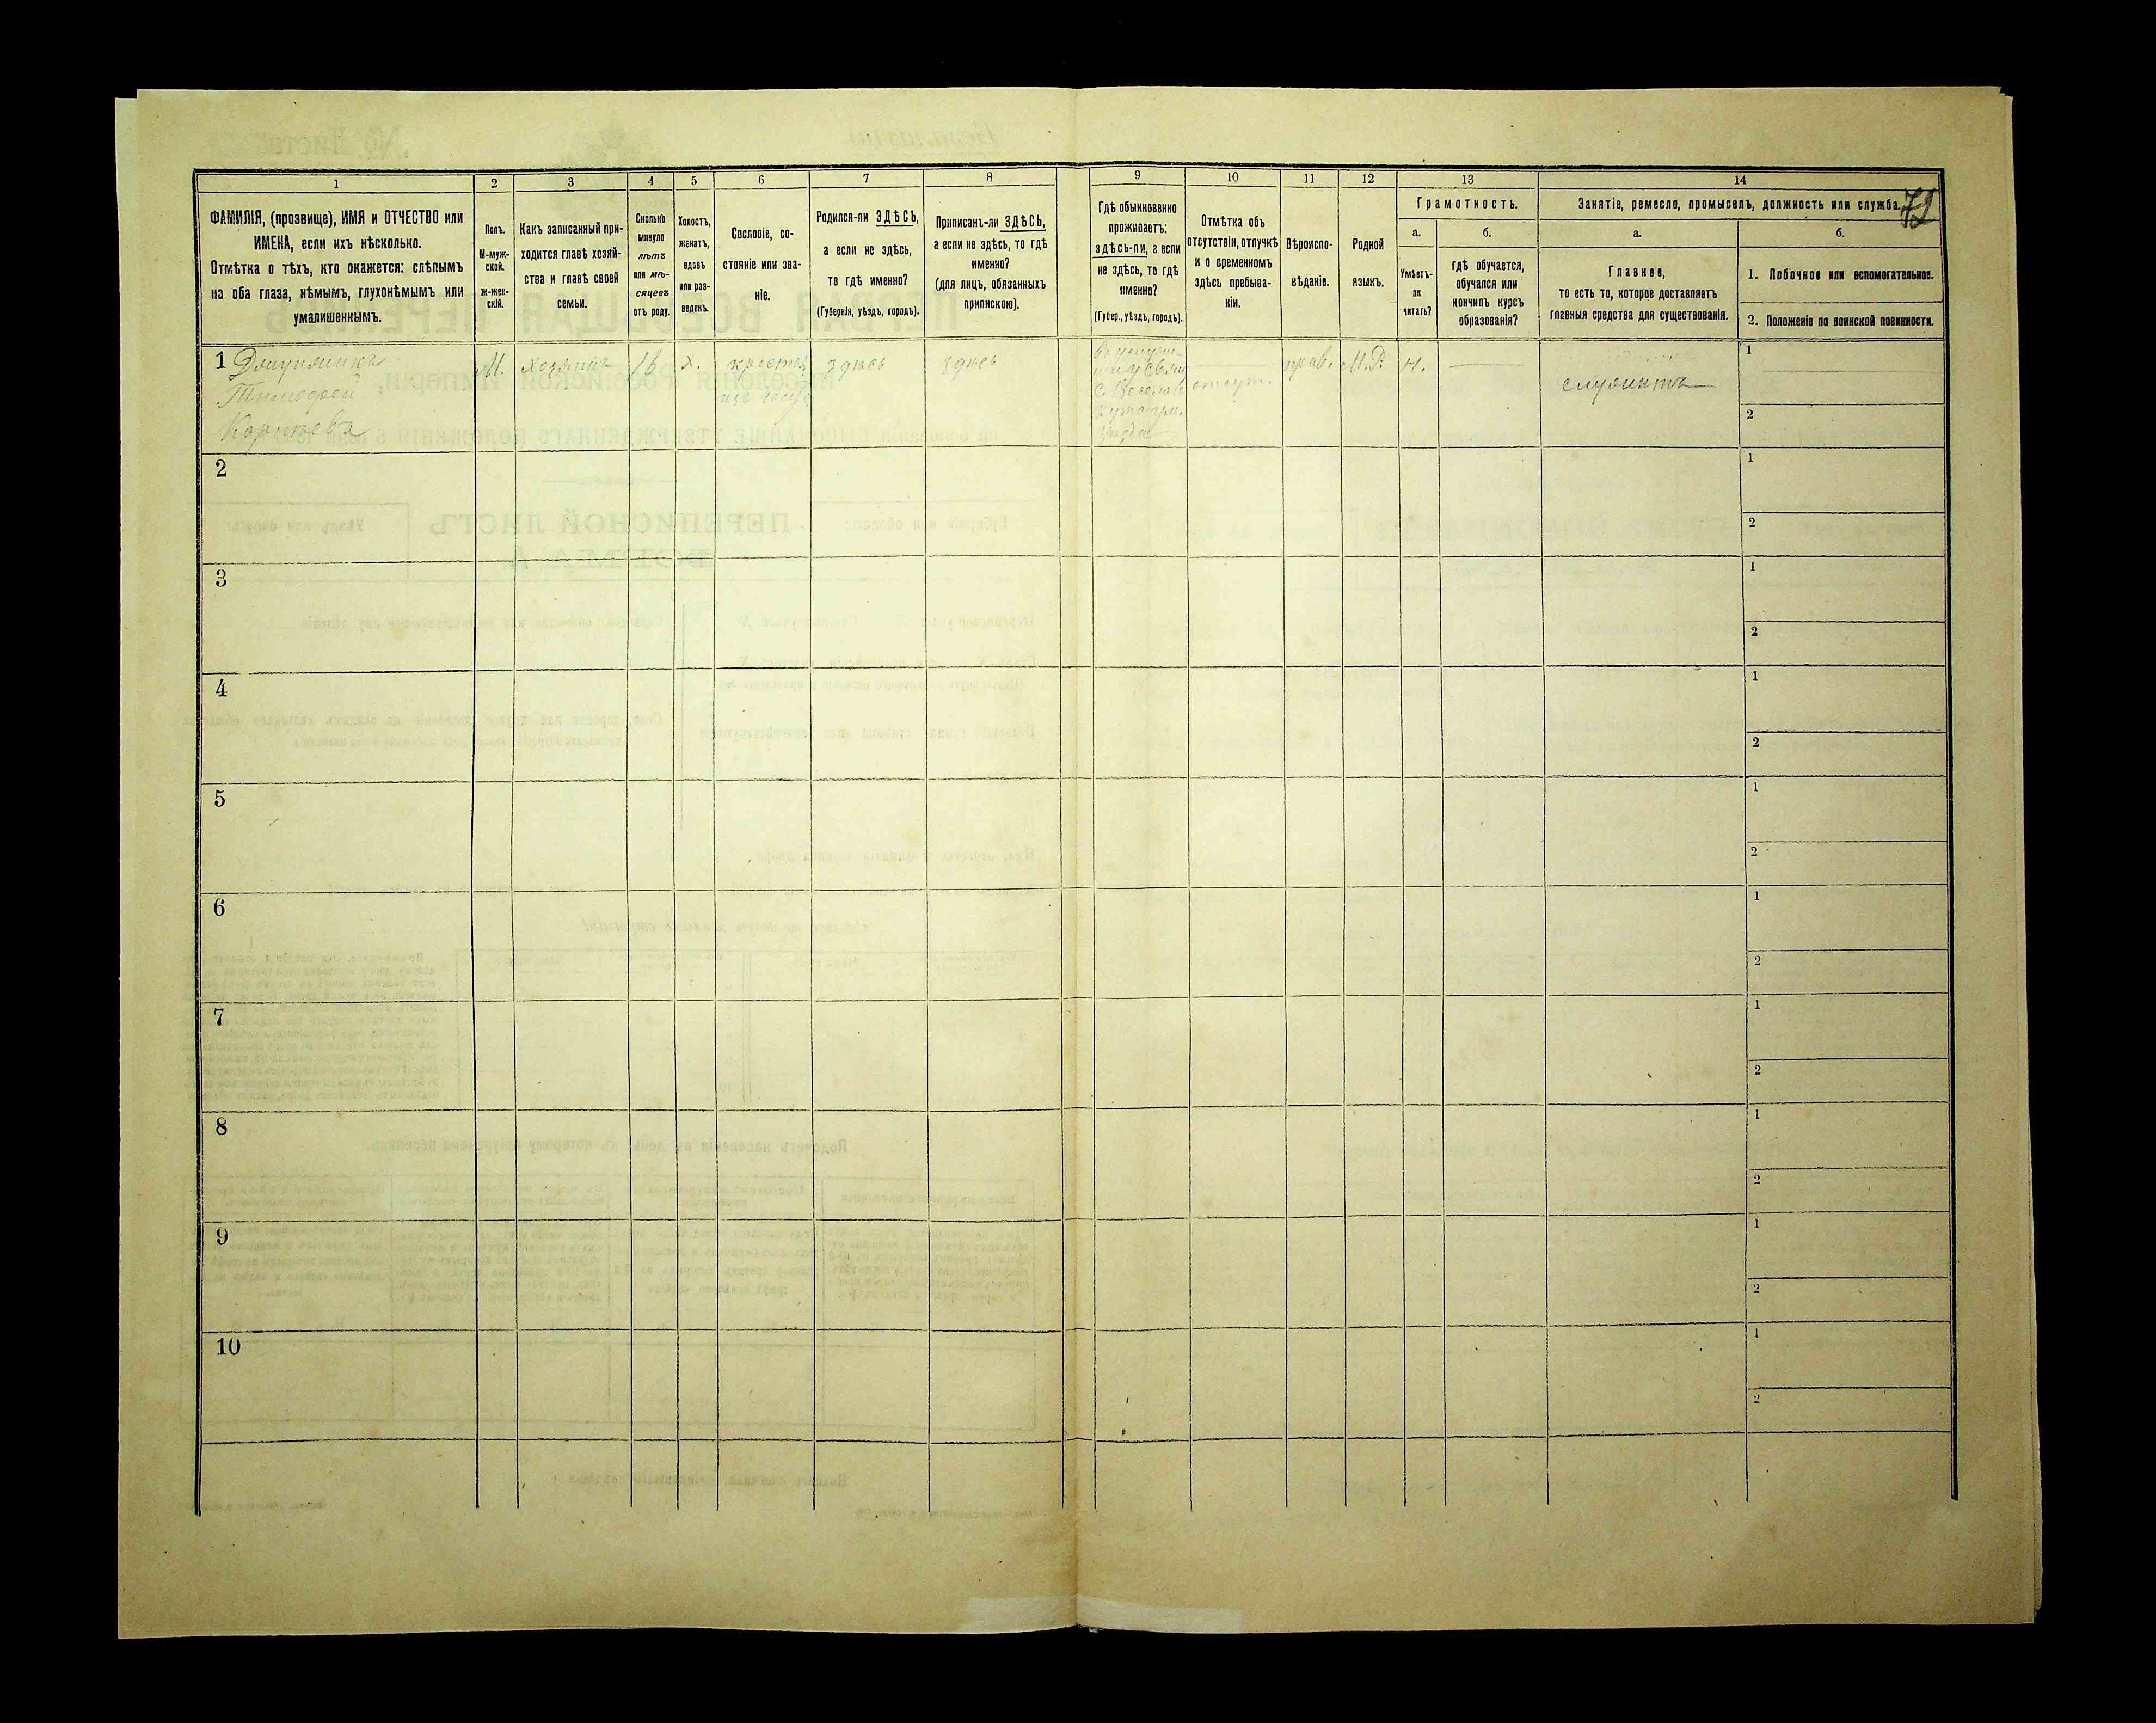 72
1
ФАМИЛІЯ, (прозвище), ИМЯ и ОТЧЕСТВО или
ИМЕНА, если ихъ нѣсколько.
Отмѣтка о тѣхъ, кто окажется: слѣпымъ
на оба глаза, нѣмымъ, глухонѣмымъ или
умалишеннымъ.
2
Полъ.
М-муж-
ской.
Ж-жен-
скій.
3
Какъ записанный при-
ходится главѣ хозяй-
ства и главѣ своей
семьи.
4
Сколько
минуло
лѣтъ
или мѣ-
сяцевъ
отъ роду.
5
Холостъ,
женатъ,
вдовъ
или раз-
веденъ.
6
Сословіе, со-
стояніе или зва-
ніе.
7
Родился-ли ЗДѢСЬ,
а если не здѣсь,
то гдѣ именно?
(Губернія, уѣздъ, городъ).
8
Приписанъ-ли ЗДѢСЬ,
а если не здѣсь, то гдѣ
именно?
(для лицъ, обязанныхъ
припискою).
9
Гдѣ обыкновенно
проживаетъ:
здѣсь-ли, а если
не здѣсь, то гдѣ
именно?
(Губер., уѣздъ, городъ).
10
Отмѣтка объ
отсутствіи, отлучкѣ
и о временномъ
здѣсь пребыва-
ніи.
11
Вѣроиспо-
вѣданіе.
12
Родной
языкъ.
13
Грамотность.
а.
Умѣетъ-
ли
читать?
б.
гдѣ обучается,
обучался или
кончилъ курсъ
образованія?
14
Занятіе, ремесло, промыселъ, должность или служба.
а.
Главное,
то есть то, которое доставляетъ
главныя средства для существованія.
б.
1. Побочное или вспомогательное.
2. Положеніе по воинской повинности.
1
Тимофей
Корнѣевъ
М.
хозяинъ
18
х.
крестья
здѣсь
здѣсь
отсут.
прав.
М.Р.
н.
служитъ
1
2
2
1
2
3
1
2
4
1
2
5
1
2
6
1
2
7
1
2
8
1
2
9
1
2
10
1
2